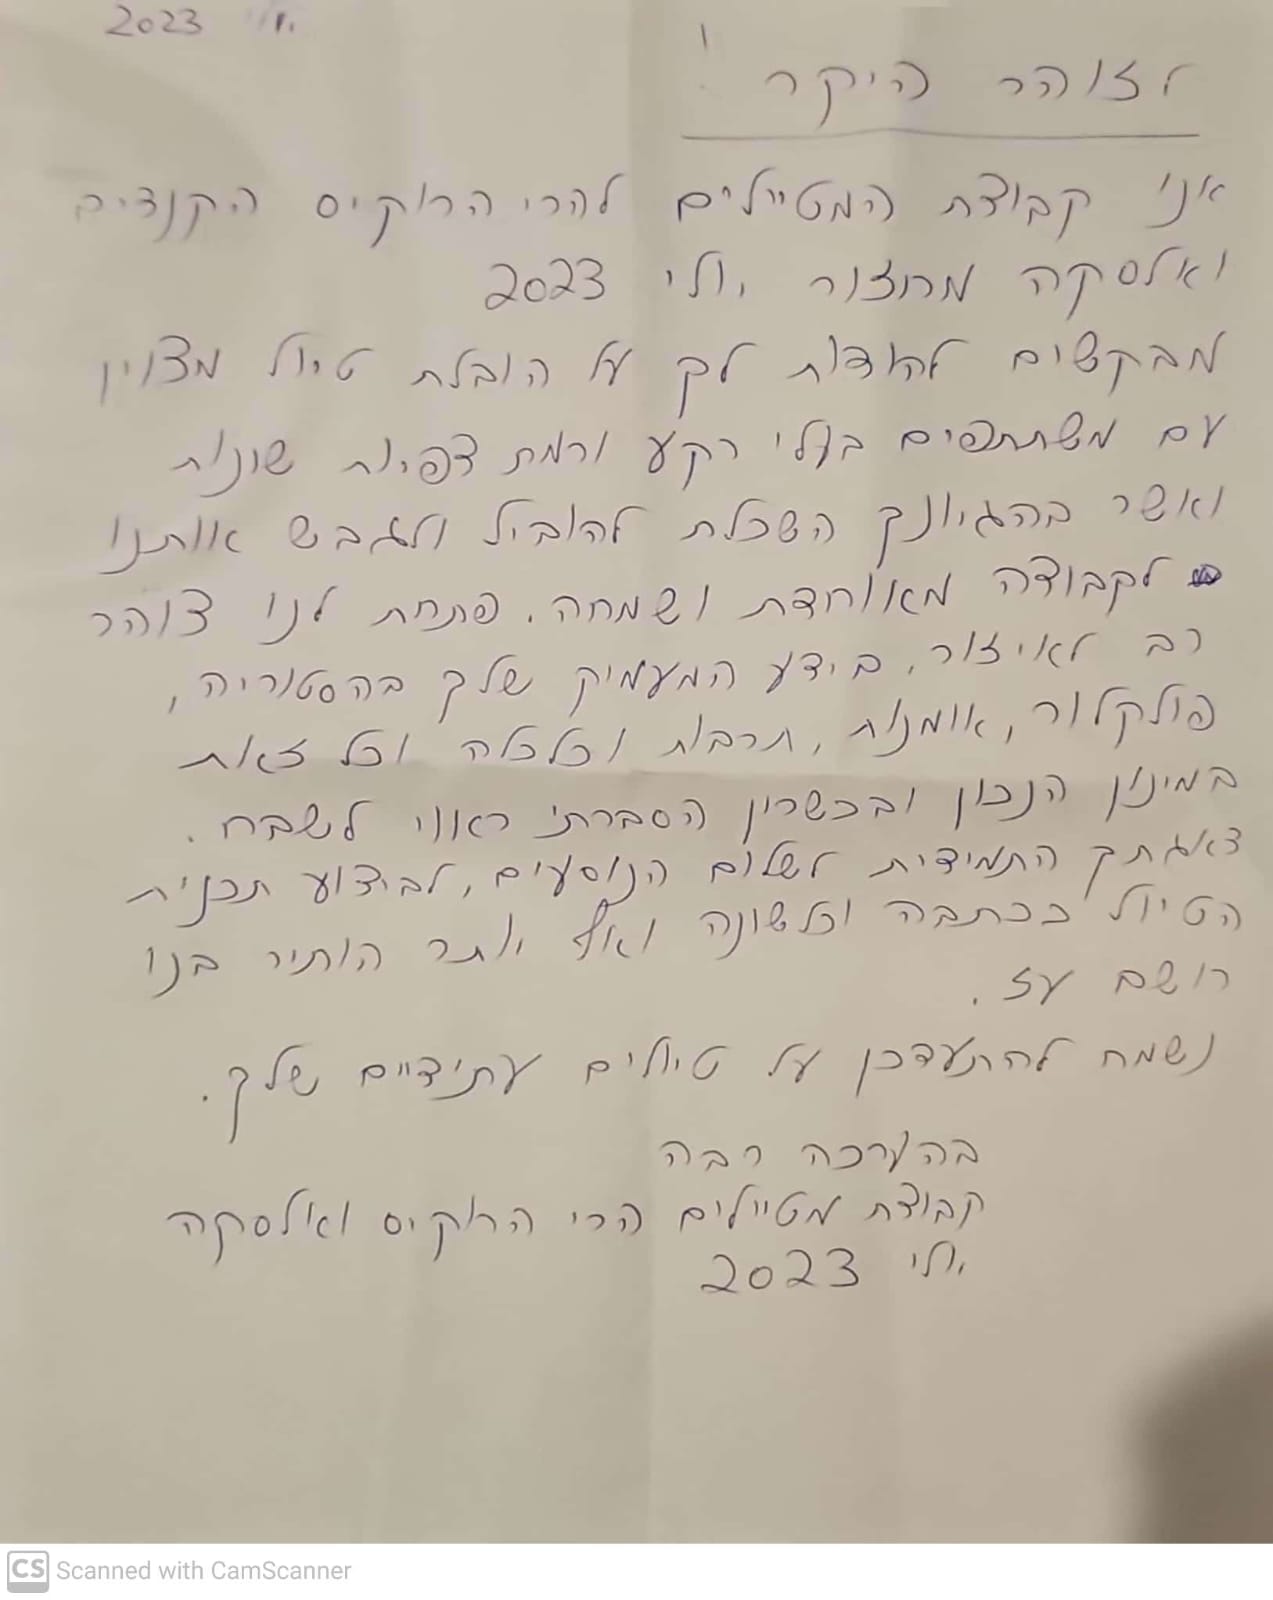 יולי 2023
לזוהר היקר !
אנו קבוצת המטיילים להרי הרוקיס הקנדים
ואלסקה מחזור יולי 2023
מבקשים להודות לך על הובלת טיול מצוין
עם משתתפים בעלי רקע ורמת צפיות שונות
ואשר בהגיונך השכלת להוביל ולגבש אותנו
לקבוצה מאוחדת ושמחה. פתחת לנו צוהר
רב לאיזור, בידע המעמיק שלך בהסטוריה,
פולקלור, אומנות, תרבות וכלכלה וכל זאת
במינון הנכון ובכשרון הסברתי ראוי לשבח.
דאגתך התמידית לשלום הנוסעים, לביצוע תכנית
הטיול ככתבה וכלשונה ואף יותר הותיר בנו
רושם עז.
נשמח להתעדכן על טיולים עתידיים שלך.
בהערכה רבה
קבוצת מטיילים הרי הרוקיס ואלסקה
יולי 2023
CS Scanned with CamScanner